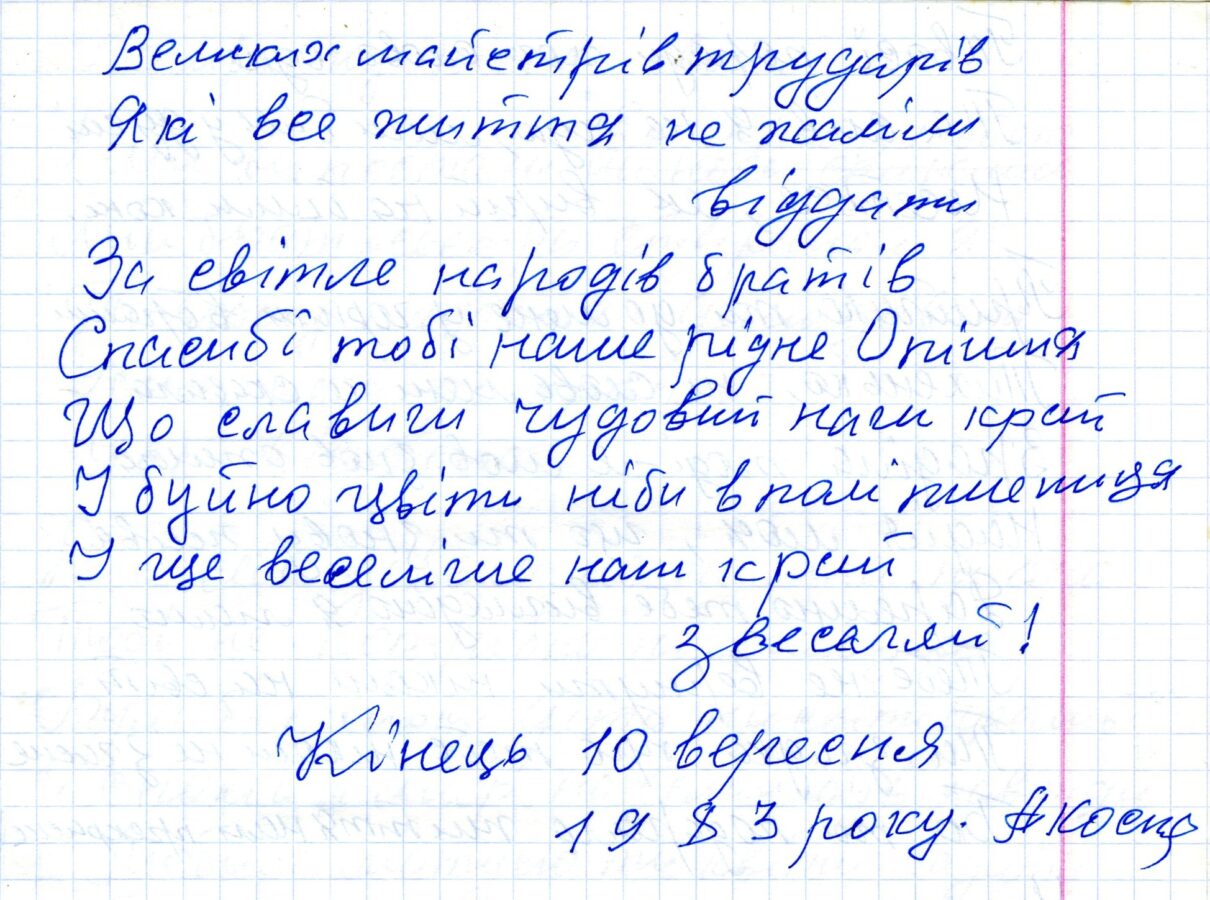 Великих майстрів трударів
Які все життя не жаліли
віддати
За світле народів братів
Спасибі тобі наше рідне Опішня
Що славиш чудовий наш край
І буйно цвіти ніби в полі пшениця
І ще веселіше наш край
звеселяй!
Кінець 10 вересня
1983 року.